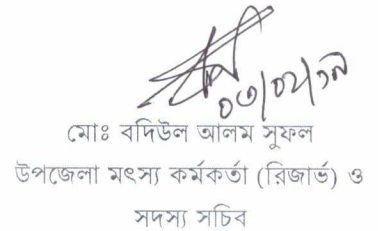 ০৩/০২/১৯
মোঃ বদিউল আলম সুফল
উপজেলা মৎস্য কর্মকর্তা (রিজার্ভ) ও
সদস্য সচিব